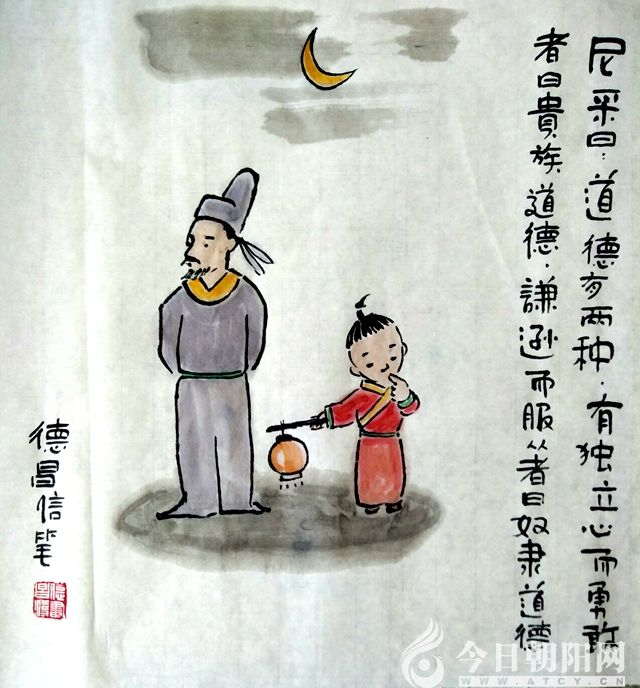 尼采曰：道德有两种.有独立心而勇敢
者曰貴族道德.謙逊而服从者曰奴隶道德
德昌信笔
今日朝阳网
WWW.ATCY.CN